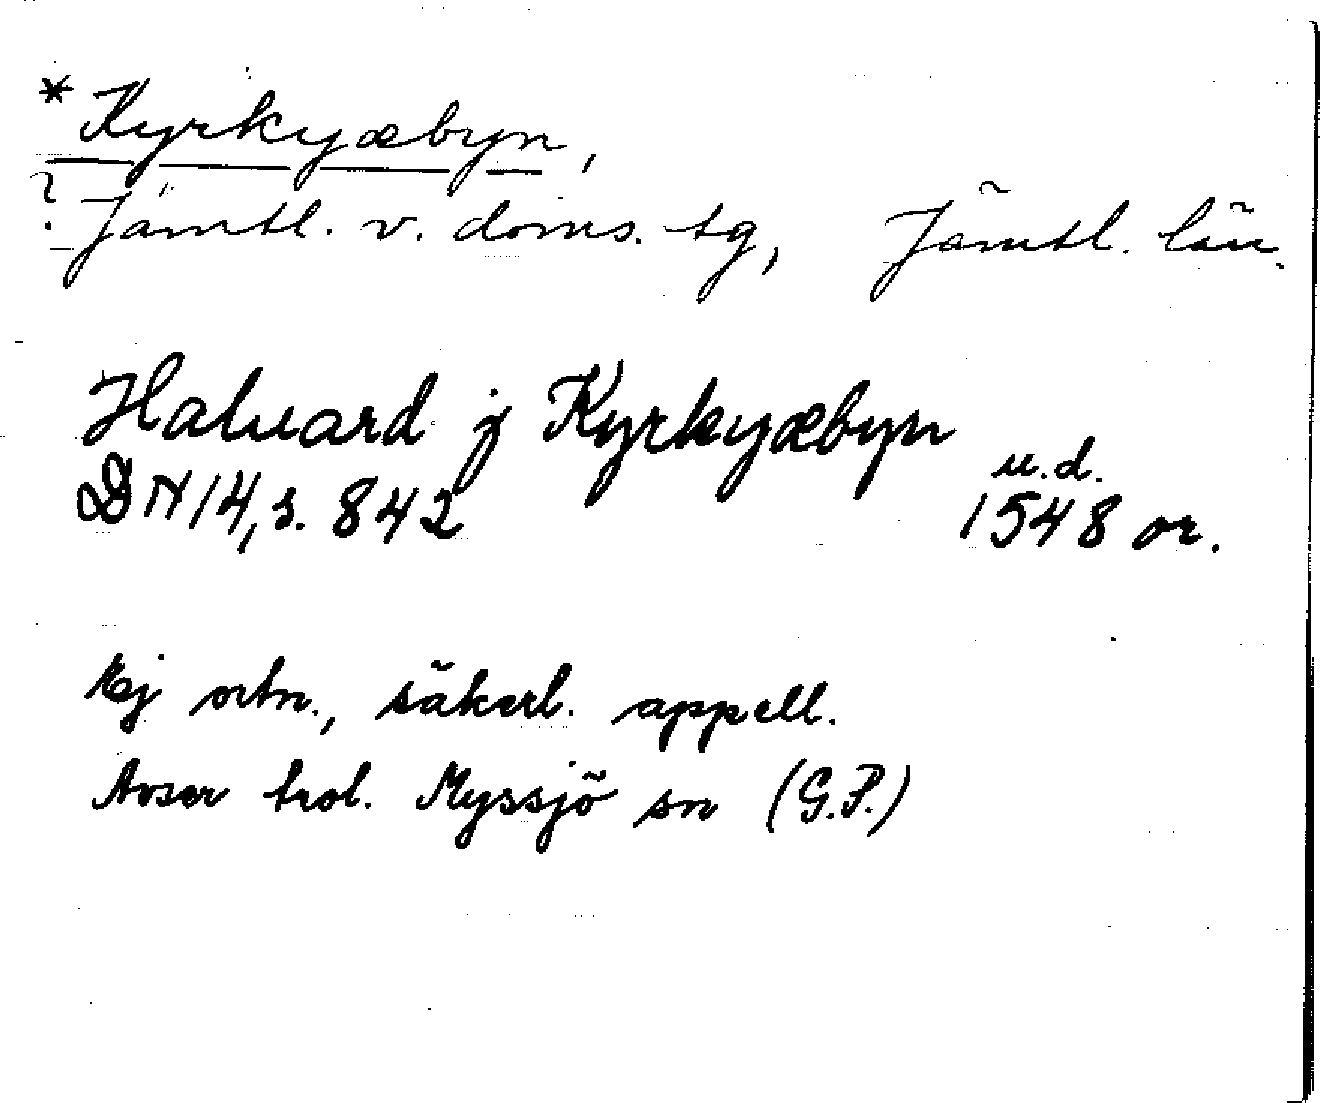 * Kyrkyæbyn,
? Jämtl. v. doms. tg, Jämtl. län.
Haluard j Kyrkyæbyn
u.d.
DN 14, s. 842 1548 or.
Ej ortn., säkerl. appell.
Avser trol. Myssjö sn (G.P.)